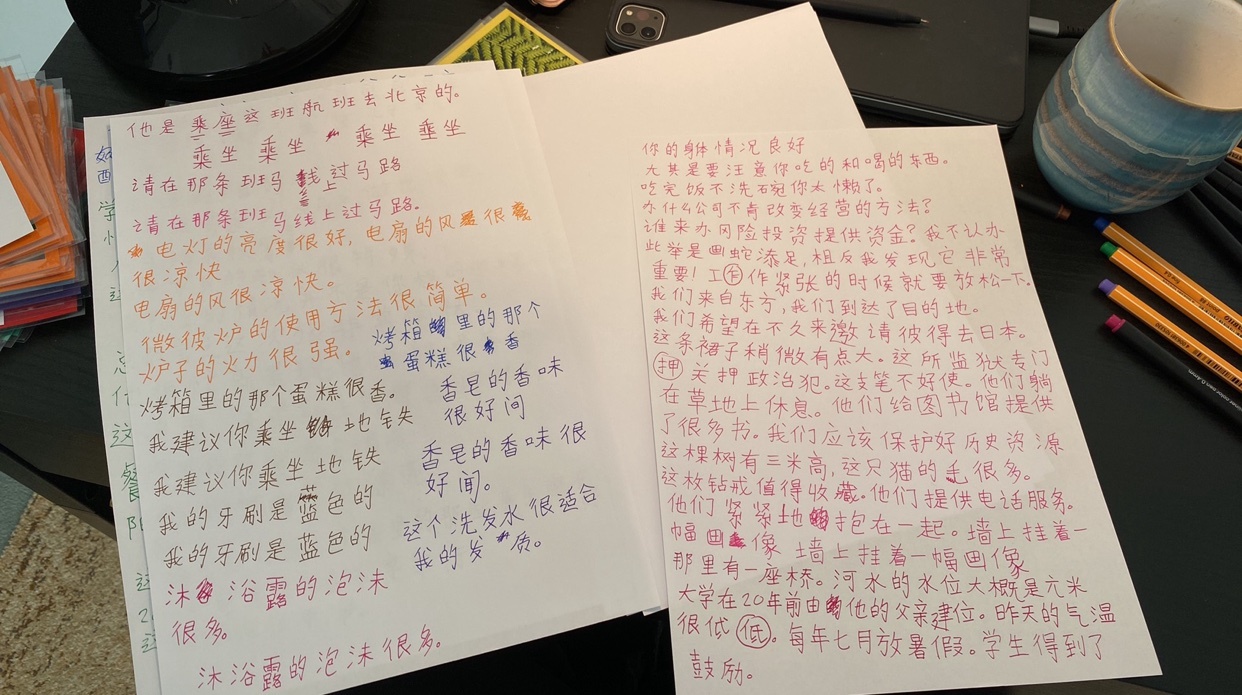 他是乘座这班航班去北京的。
乘坐 乘坐 乘坐 乘坐
请在那条班马线上过马路
请在那条班马线上过马路。
电灯的亮度很好,电扇的风很
很凉快
电扇的风很凉快。
微彼炉的使用方法很简单。
炉子的火力很强。
烤箱里的那个蛋糕很香。
我建议你乘坐地铁
我建议你乘坐地铁
我的牙刷是蓝色的
我的牙刷是蓝色的
沐浴露的泡沫
很多。
沐浴露的泡沫很多。
烤箱里的那个
蛋糕很香
香皂的香味
很好间
香皂的香味很
好闻。
这个洗发水很适合
我的发质。
你的身体情况良好
尤其是要注意你吃的和喝的东西。
吃完饭不洗碗你太懒了。
为什么公司不肯改变经营的方法?
谁来办风险投资提供资金?我不认为
此举是画蛇添足,相反我发现它非常
重要!工作作紧张的时候就要放松一下。
我们来自东方,我们到达了目的地。
我们希望在不久来邀请彼得去日本。
这条裙子稍微有点大。这所监狱专门
押 关押政治犯。这支笔不好使。他们躺
在草地上休息。他们给图书馆提供
了很多书。我们应该保护好历史资源
这棵树有三米高,这只猫的毛很多。
这枚钻戒值得收藏。他们提供电话服务。
他们紧紧地抱在一起。墙上挂着一
幅画像 墙上挂着一幅画像
那里有一座桥。河水的水位大概是六米
大学在20年前由他的父亲建位。昨天的气温
很低低。每年七月放暑假。学生得到了
鼓励。